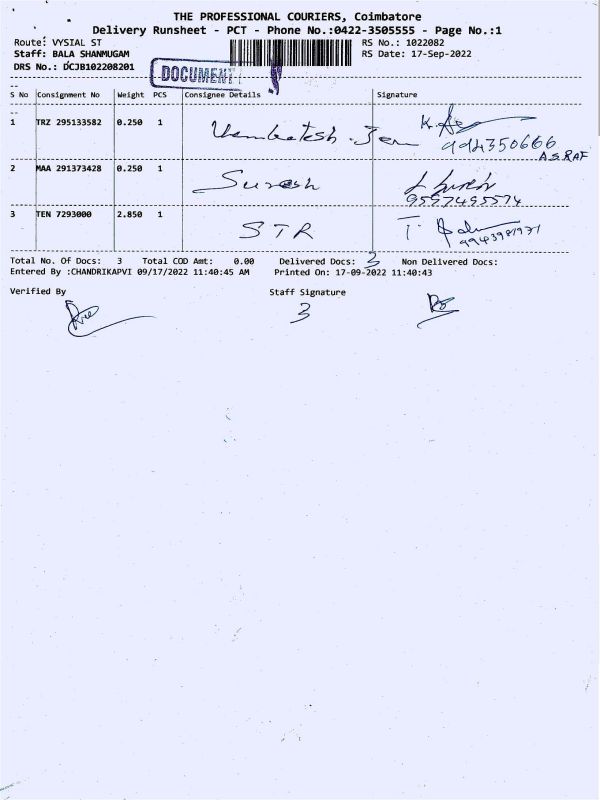 THE PROFESSIONAL COURIERS, Coimbatore
Delivery Runsheet - PCT - Phone No.:0422-3505555 - Page No.:1
Route: VYSIAL ST RS No.: 1022082
Staff: BALA SHANMUGAM RS Date: 17-Sep-2022
DRS No.: DCJB102208201
DOCUMENT
S No Consignment No Weight PCS Consignee Details Signature
1 TRZ 295133582 0.250 1
9994350666
ASRAF
2 MAA 291373428 0.250 1 Suresh
9597495574
3 TEN 7293000 2.850 1 STR T.
Total No. Of Docs: 3 Total COD Amt: 0.00 Delivered Docs: 3 Non Delivered Docs:
Entered By :CHANDRIKAPVI 09/17/2022 11:40:45 AM Printed On: 17-09-2022 11:40:43
Verified By Staff Signature
3